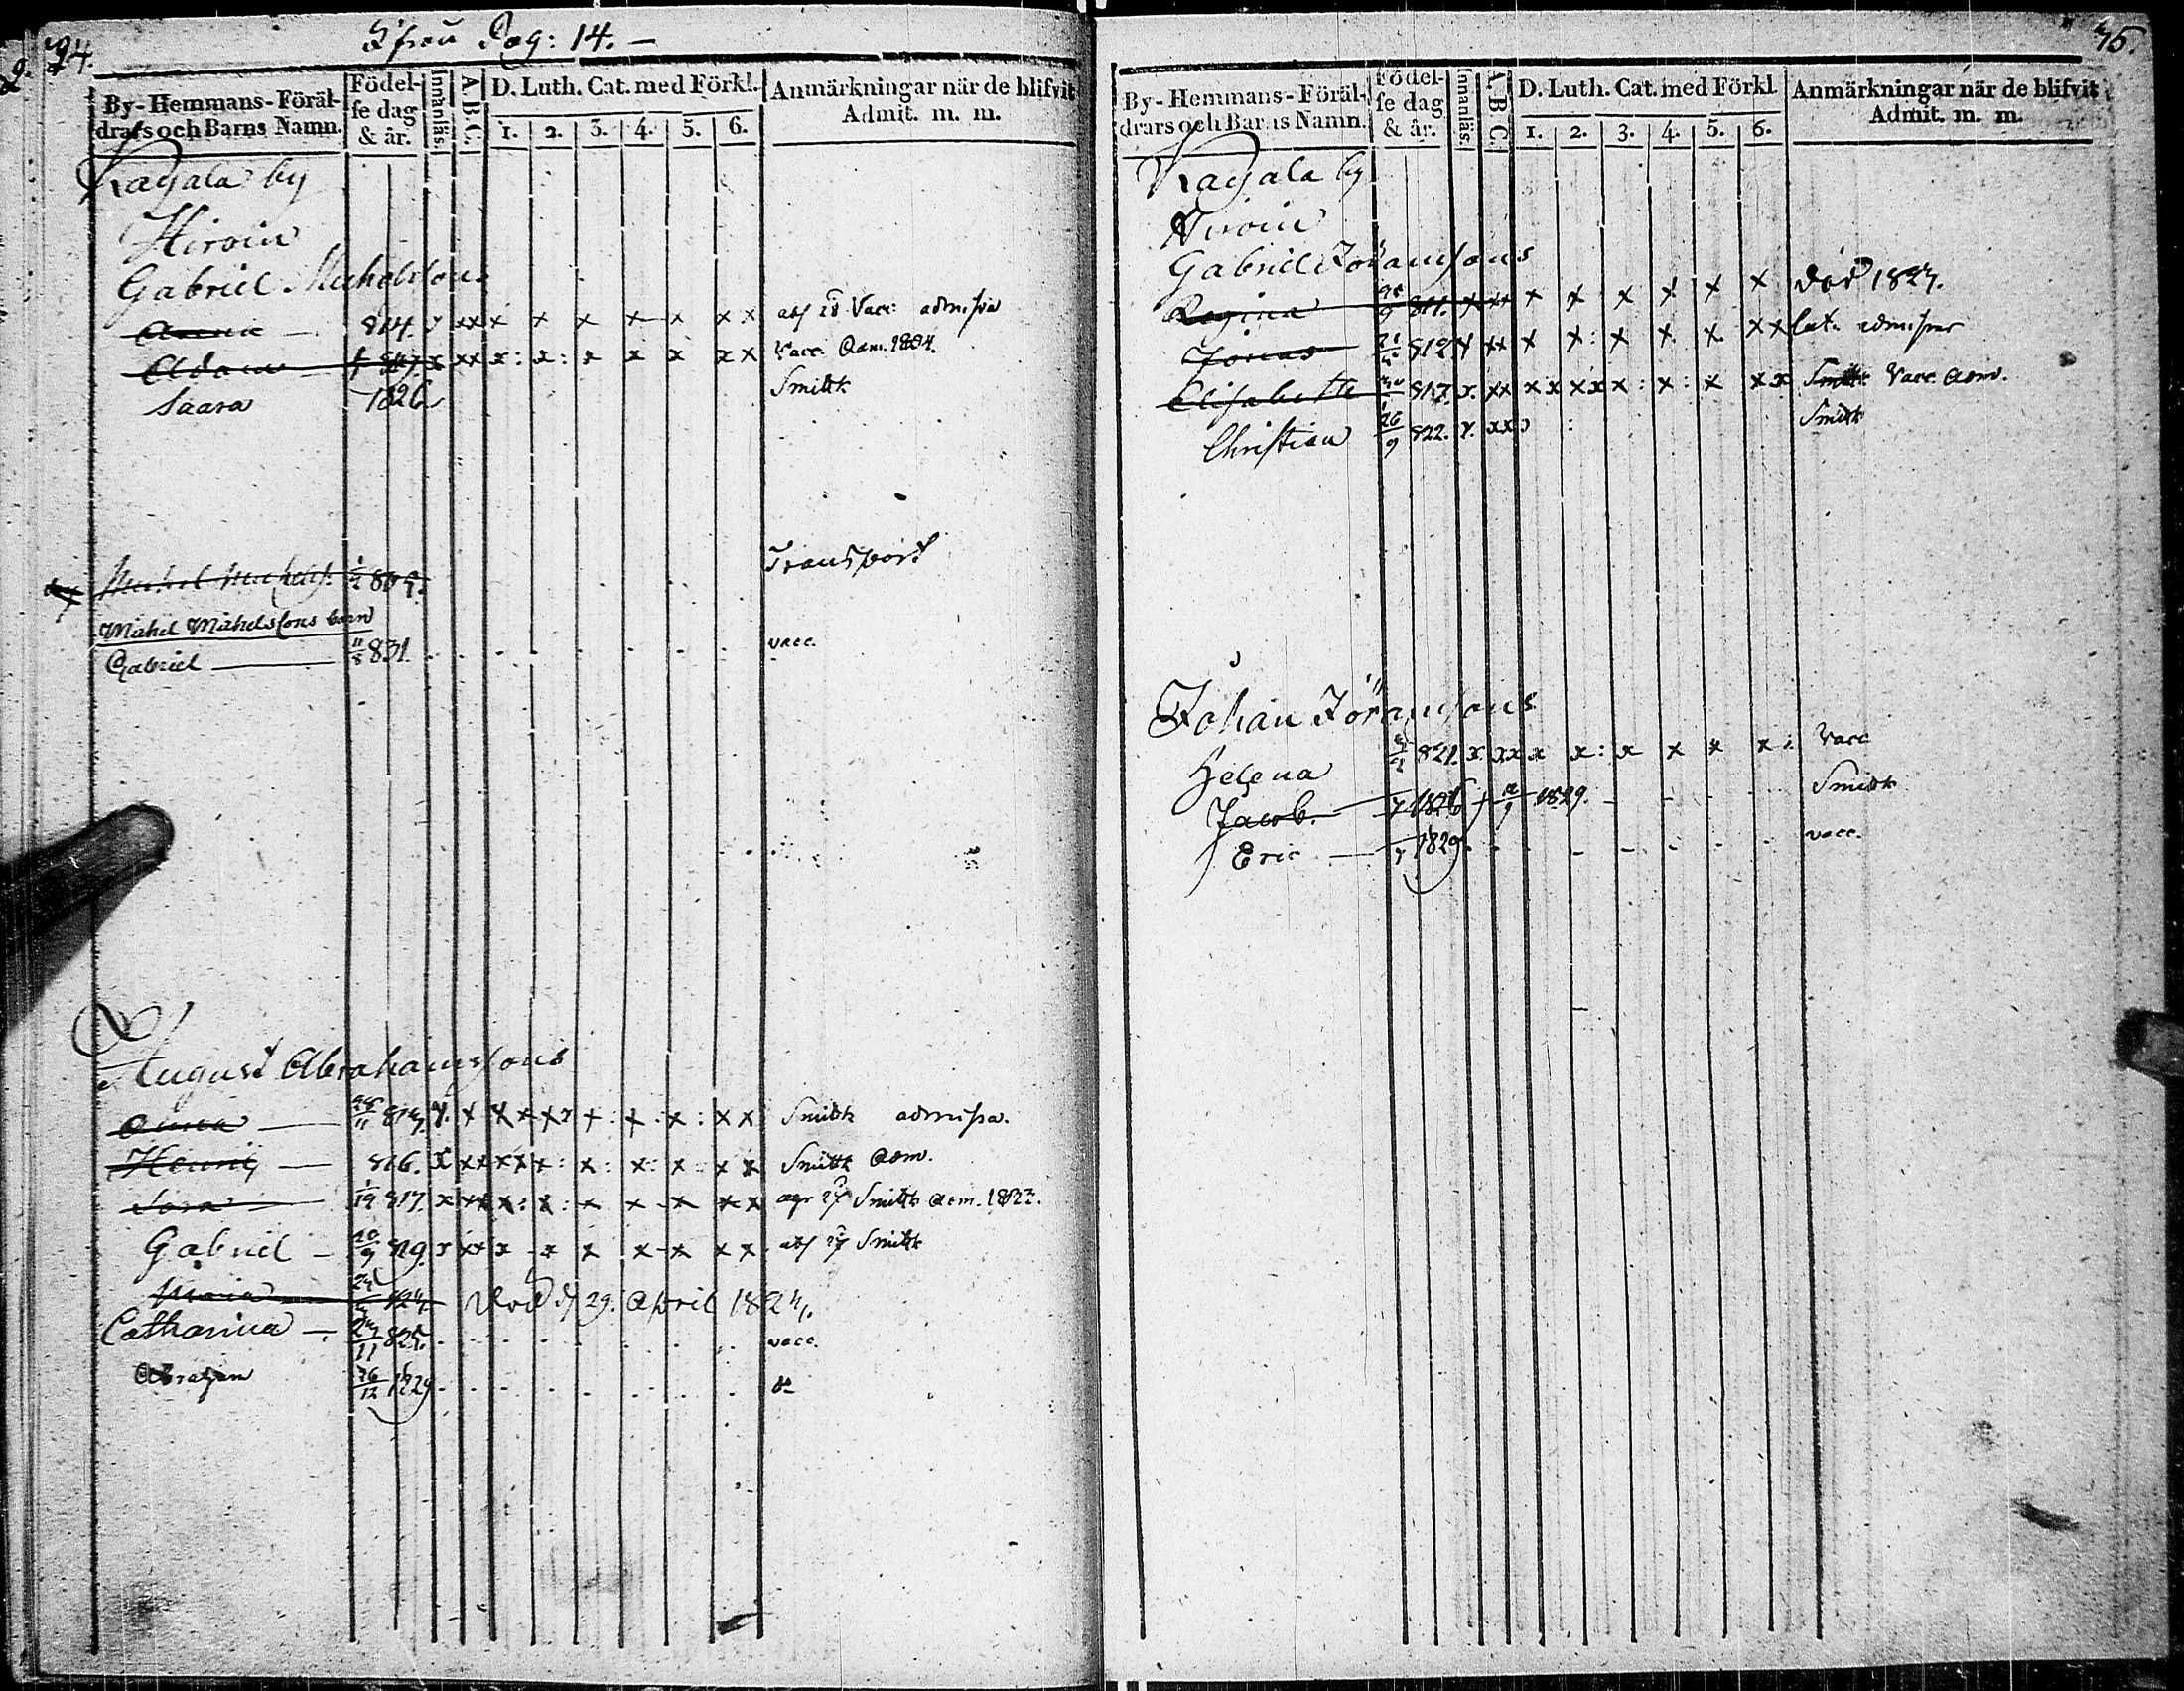 94.
Ifrån Pag: 14. —
By-Hemmans-Föräl-drars och Barns Namn. Födel-se dag & år. Innanläs. A B C. D. Luth. Cat. med Förkl. 1. 2. 3. 4. 5. 6. Anmärkningar när de blifvit Admit. m. m.
Kayala by
Hiroin
Gabriel Michelssons
814. x xx x x x x x x x Vacc: admissa
Adam x xx x: x: x x x x x Vacc. Adm. 1834.
Saara 1826 Smittk
Transport
Michel Michelss. 809.
Michel Michelssons barn
Gabriel — 11/8 831. vacc.
August Abrahamssons
Anna — Smittk admissa.
Henric — 816. x xx x x x: x: x: x: x x Smittk Adm.
Sara — 1/19 817. x xx x: x: x x x x x Smittk Adm. 1833.
Gabriel — 819. x xx x x x x x x x Smittk
Maria Död d 29. April 1824.
Catharina — 825. vacc.
Abraham 26/12 1829 d:o
By-Hemmans-Föräl-drars och Barns Namn. Födel-se dag & år. Innanläs. A B C. D. Luth. Cat. med Förkl 1. 2. 3. 4. 5. 6. Anmärkningar när de blifvit Admit. m. m.
Kayala by
Hiroin
Gabriel Göranssons
Regina 811. x xx x x x x x x död 1827.
Jonas 812 x xx x x: x x. x. x x admissus
Elisabetha 817. x. xx x x x x x: x: x x x Smittk Vacc. Adm.
Christian 26/9 822. x. xx Smittk
Johan Göranssons
Helena 821. x. xx x x: x x x x: Vacc
Jacob. — 1826 † 1829. Smittk
Eric — 1829. vacc.